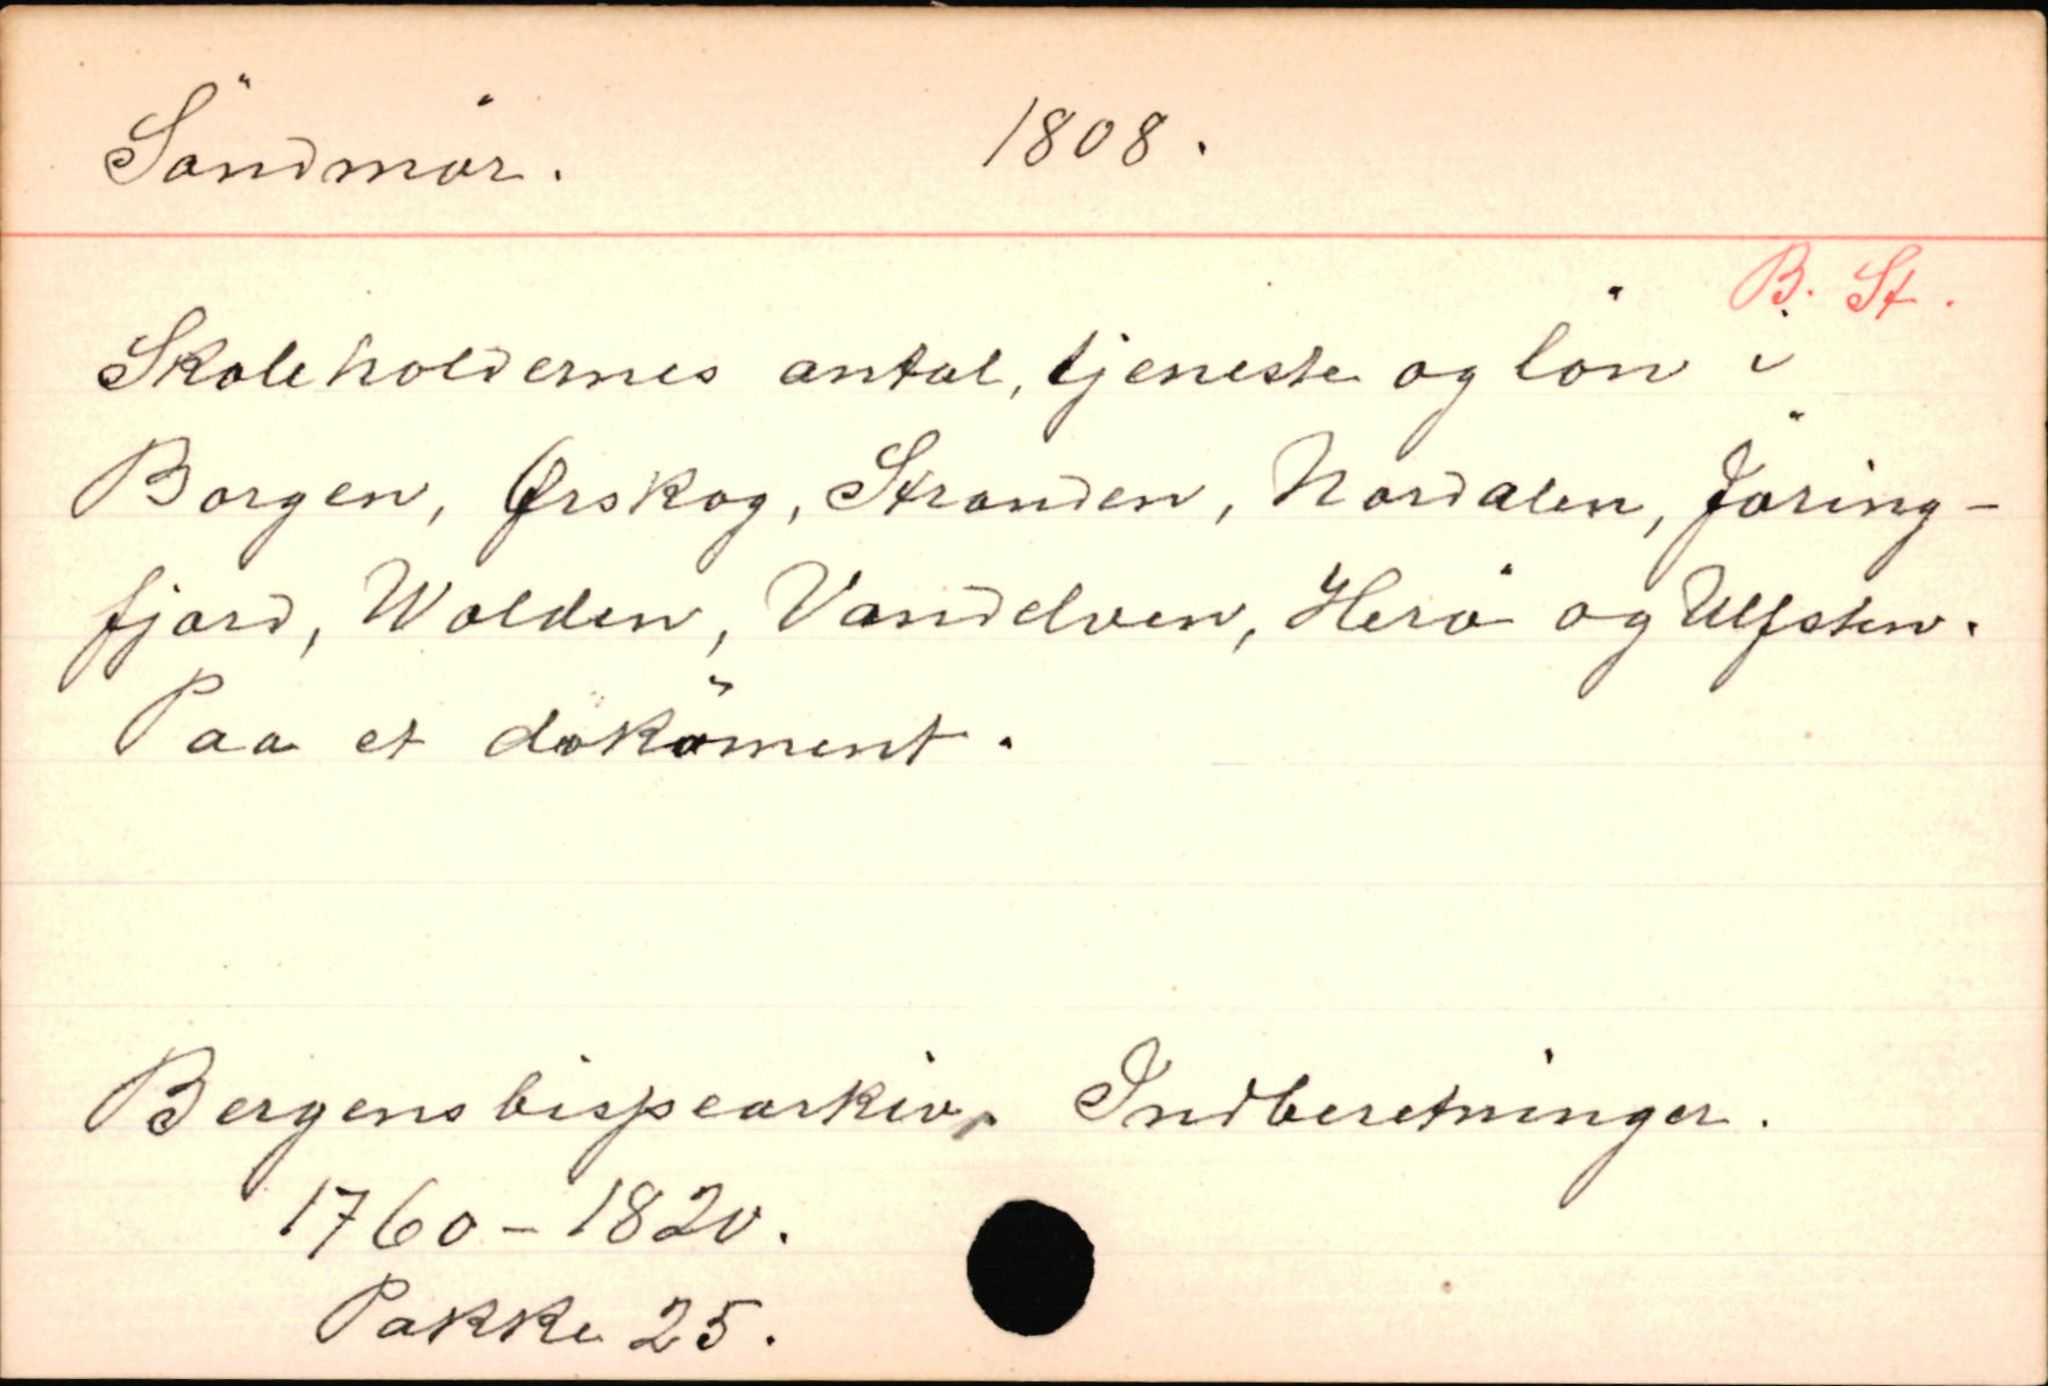 Söndmör. 1808.
B. St.
Skoleholdernes antal, tjeneste og lön i
Borgen, Ørskog, Stranden, Nordalen, Jöring-
fjord, Wolden, Vandelven, Herö og Ulfsten.
Paa et dokument.
Bergens bispearkiv. Indberetninger.
1760-1820.
Pakke 25.